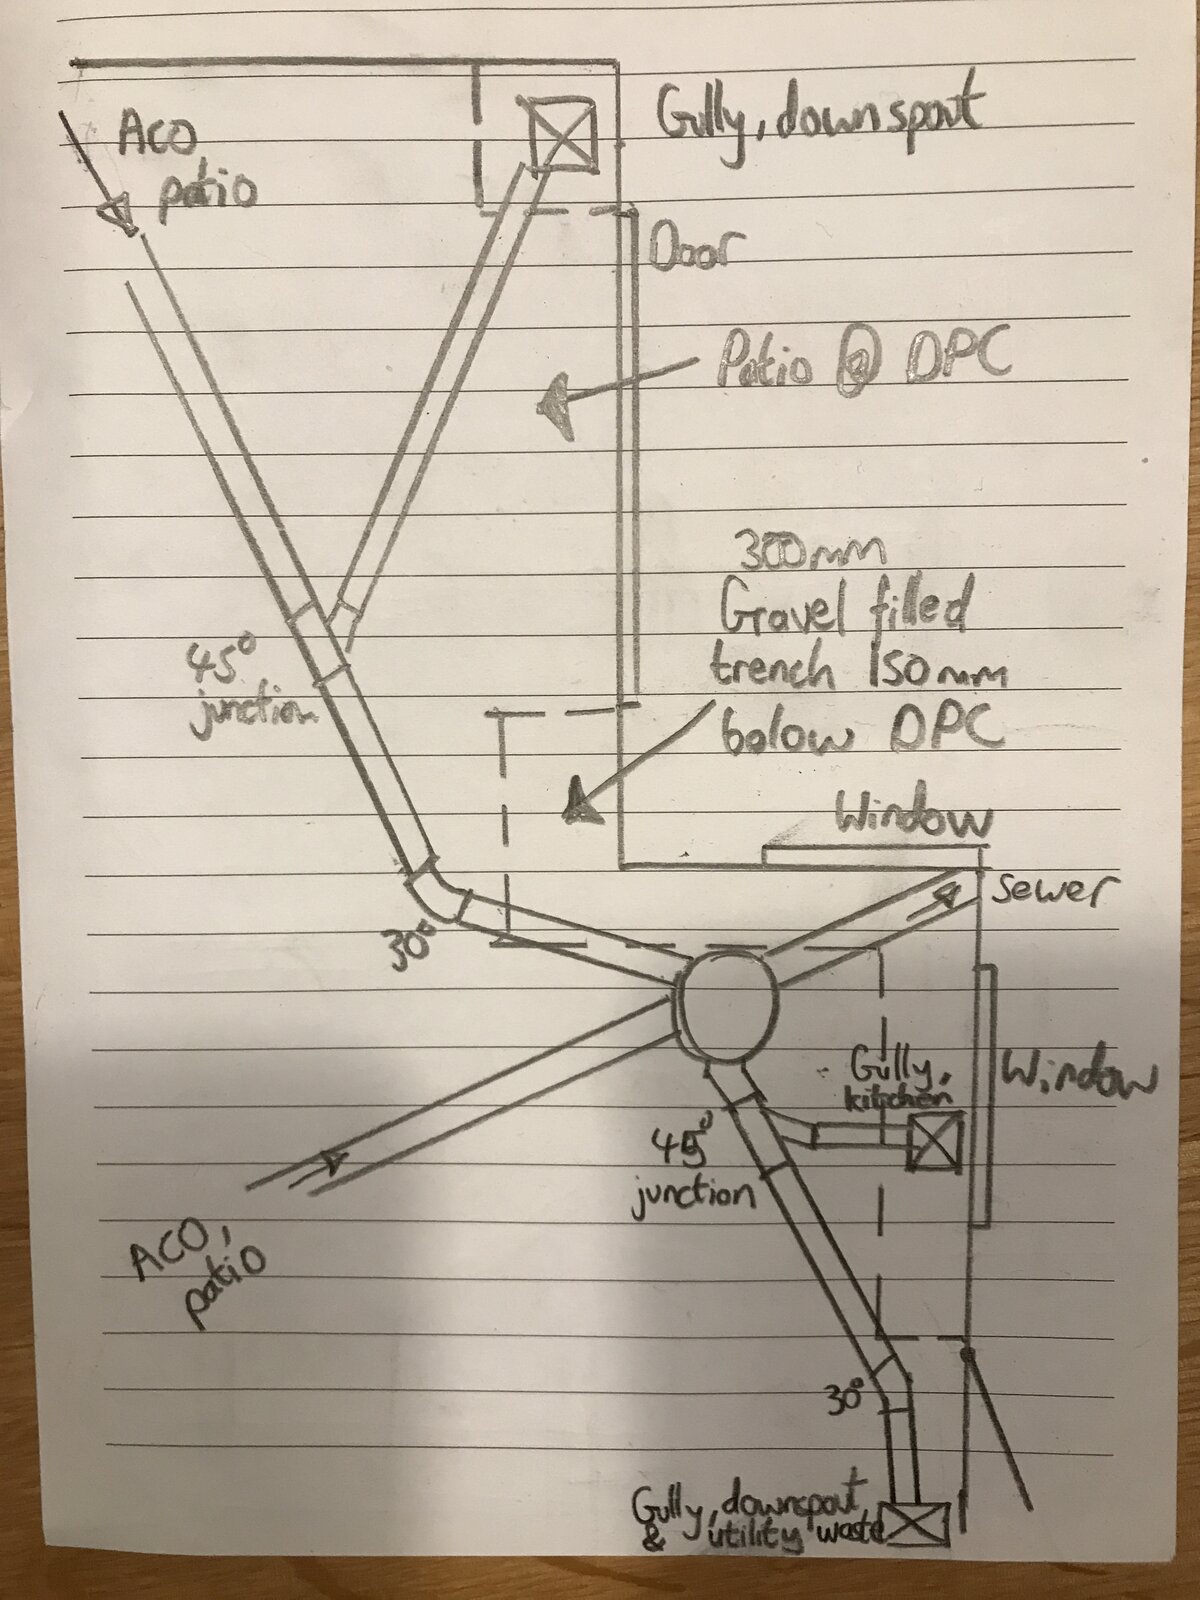 Aco,
patio
Gully, downspout
Door
Patio @ DPC
300mm
Gravel filled
trench 150mm
below DPC
45°
junction
Window
Sewer
30°
Gully,
kitchen
Window
45°
junction
ACO,
patio
30°
Gully, downspout
& utility waste